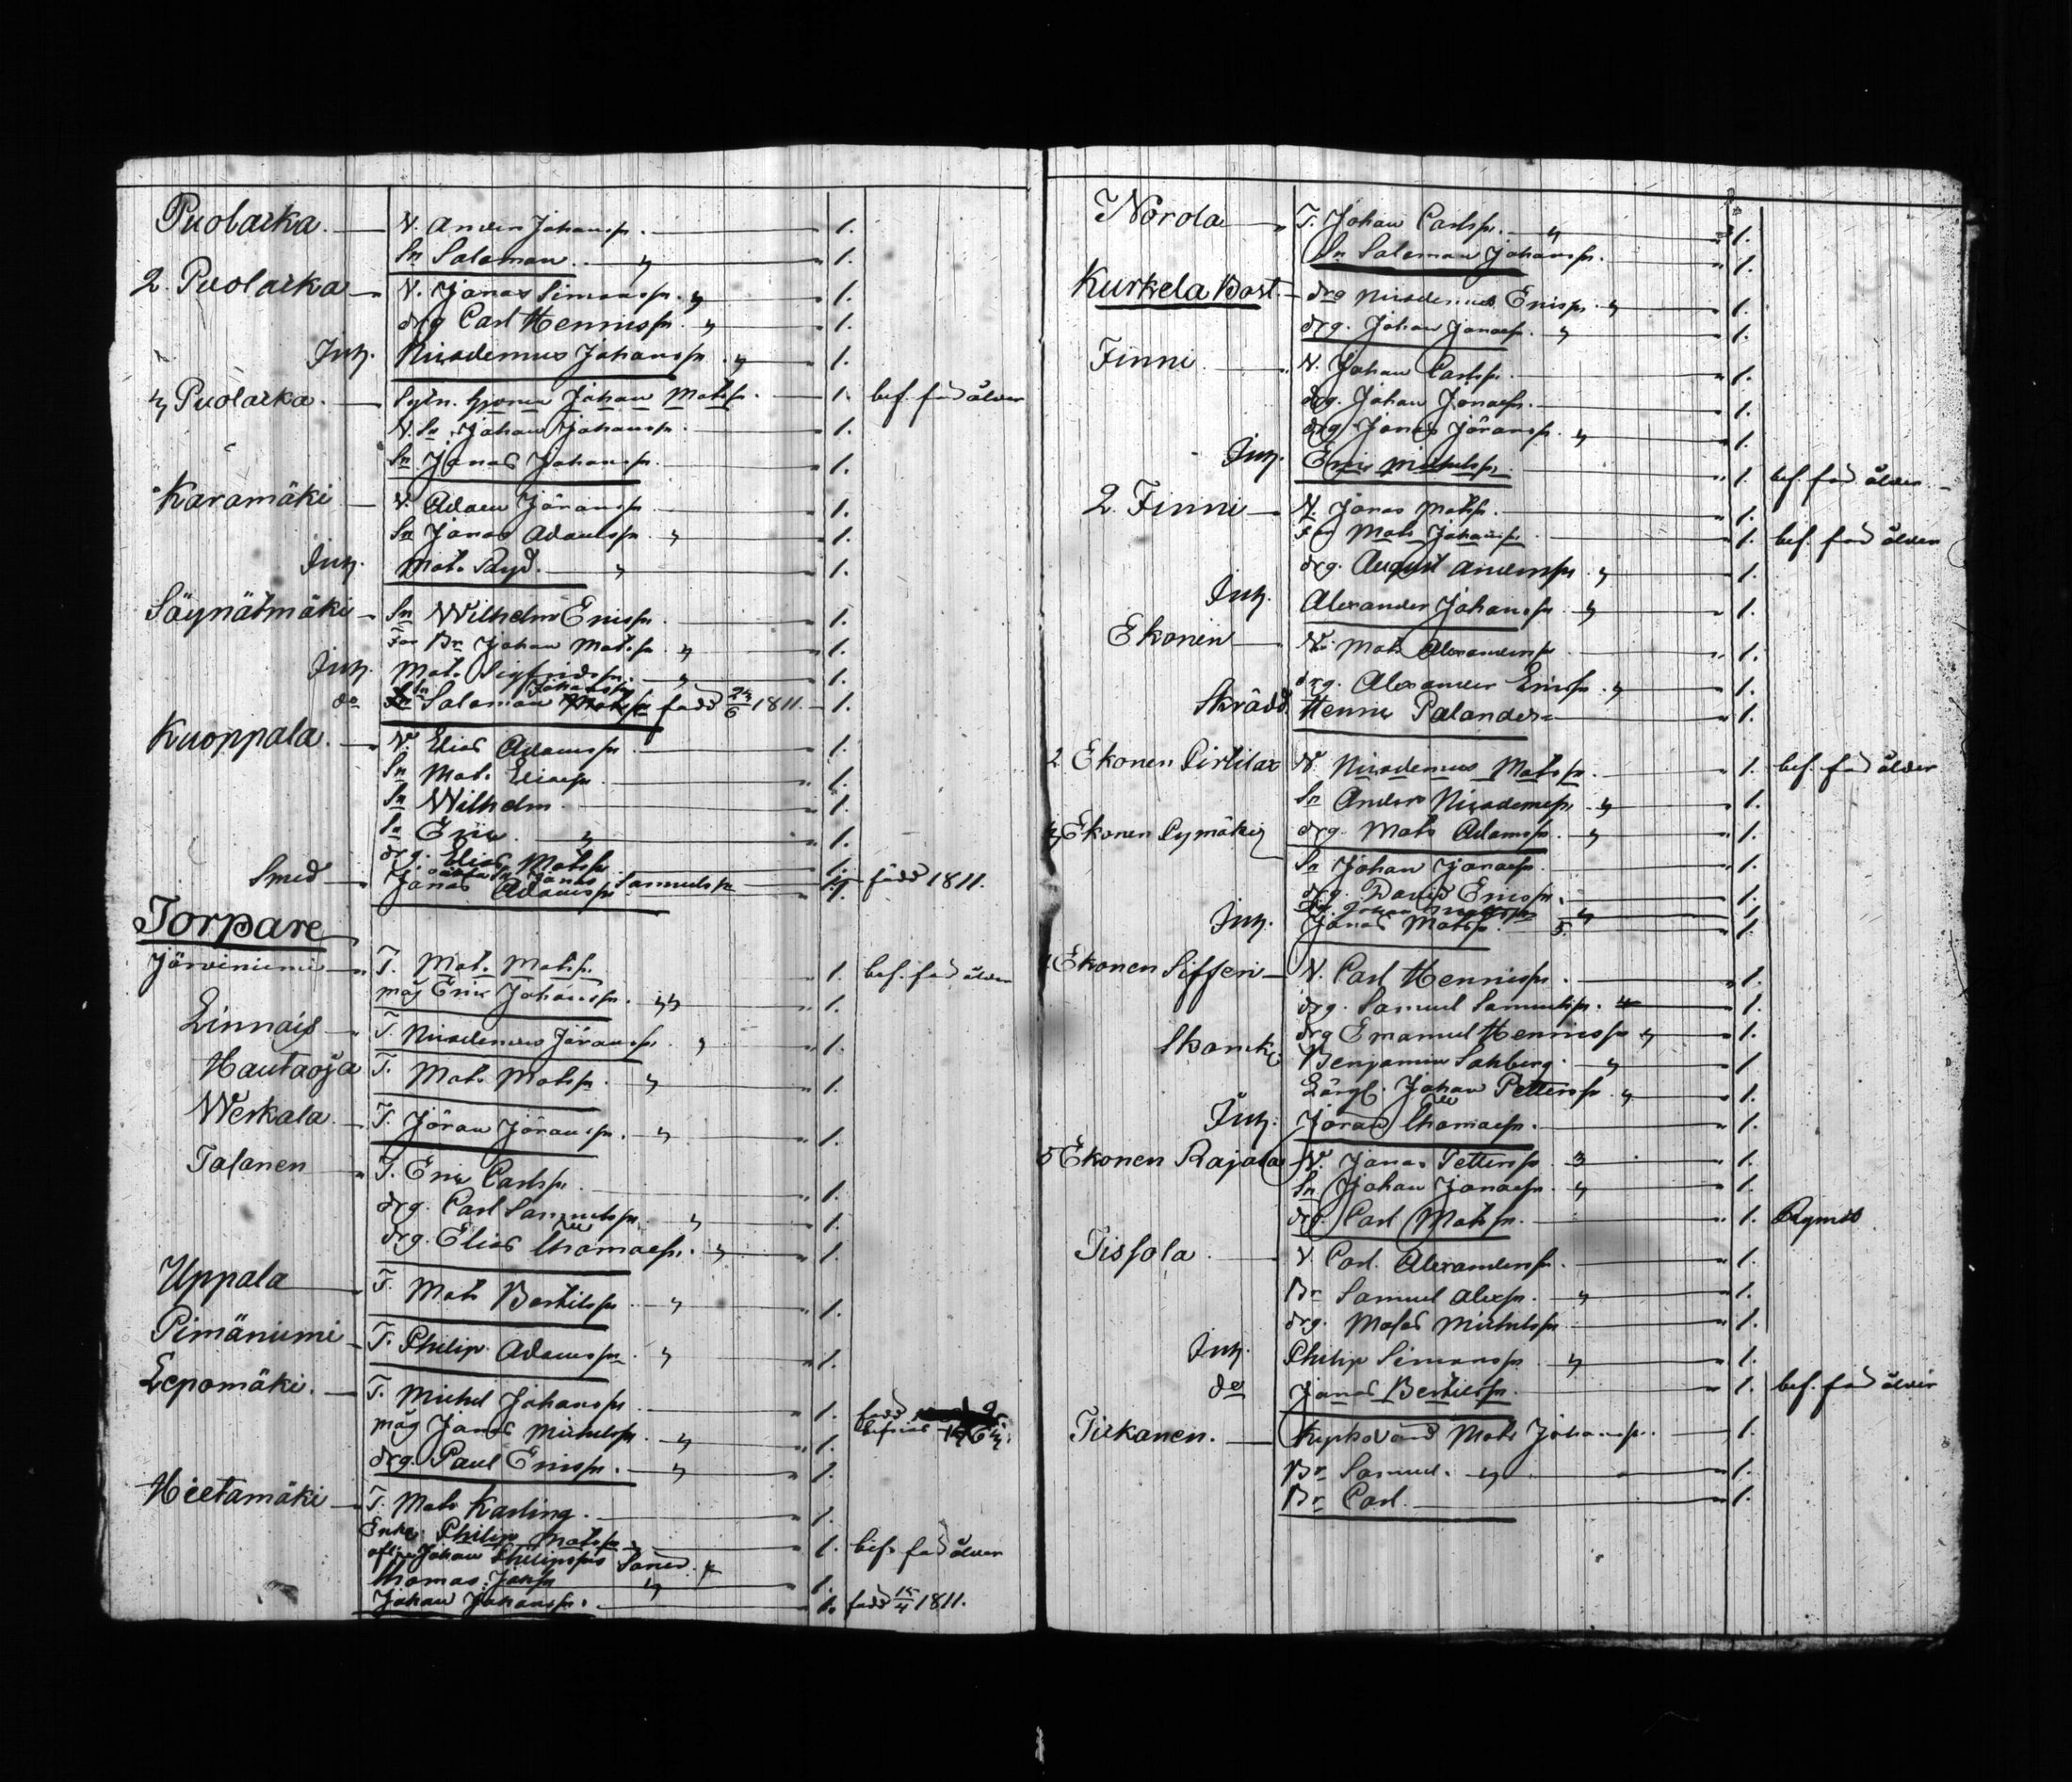 Puolacka. V. Anders Johanssn. 1.
Sn Salamon. " 1.
2. Puolacka V. Jonas Simonssn. " 1.
drg Carl Hennicssn. " 1.
Inh. Nicodemus Johanssn. " 1.
4 Puolacka. Johan Matssn. 1. bef. för ålder
N. Sn Johan Johanssn. 1.
Sn Jonas Johanssn. 1.
Karamäki V. Adam Jöranssn. 1.
Sn Jonas Adamssn. " 1.
Inh. Mats " 1.
Säynätmäki Sn Wilhelm Ericssn. 1.
Br Johan Matssn. " 1.
Inh. Mats Sigfridssn. " 1.
do Sn Salamon Johanssn född 24/6 1811. 1.
Kuoppala. V. Elias Adamssn. 1.
Sn Mats Eliassn. 1.
Sn Wilhelm. 1.
Sn Eric. " 1.
drg. Elias Matssn 1.
Jonas Samuelssn 1. född 1811.
Smed Jonas Adamssn
Torpare
Järviniemi T. Mats Matssn. 1. bef. för ålder
måg Eric Johanssn. " 1.
Linnais T. Nicodemus Jöranssn. " 1.
Hautaoja T. Mats Matssn. " 1.
Werkala T. Jöran Jöranssn. " 1.
Talanen T. Eric Carlssn. 1.
drg. Carl Samuelssn. " 1.
drg. Elias Thomassn. " 1.
Uppala T. Mats Bertilssn. " 1.
Pimäniemi T. Philip Adamssn. " 1.
Lepomäki. T. Michel Johanssn. 1.
måg Jonas Michelssn. " 1.
drg. Paul Ericssn. " 1.
Hietamäki T. Mats Karling. 1.
Philip Matssn 1. bef. för ålder
Johan Philipssns
Thomas Janssn " 1.
Johan Johanssn. 1. född 15/4 1811.
Norola T. Johan Carlssn. " 1.
Sn Salamon Johanssn. 1.
Kurkela Bost. drg Nicodemus Ericssn. " 1.
drg. Johan Jonassn. " 1.
Finni V. Johan Carlssn. 1.
drg. Johan Jonassn. 1.
drg. Jonas Jöranssn. " 1.
Inh. Eric Michelssn. 1. bef. för ålder
2. Finni V. Jonas Matssn. 1.
Mats Johanssn. 1. bef. för ålder
drg. August Anderssn. " 1.
Inh. Alexander Johanssn. " 1.
Ekonen V. Mats Alexanderssn. 1.
drg. Alexander Ericssn. " 1.
Skrädd. Henric Palander 1.
2 Ekonen Pirtilax V. Nicodemus Matssn. 1. bef. för ålder
Sn Anders Nicodemssn. " 1.
4 Ekonen Pymäki drg. Mats Adamssn. " 1.
Sn Johan Jonassn. 1.
drg. David Ericssn. 1.
Inh. Jonas Matssn. 5. 1.
Ekonen Sifferi V. Carl Hennicssn. 1.
drg. Samuel Samuelssn. 1.
drg Emanuel Hennicssn " 1.
Benjamin Sahberg. " 1.
Lärgl. Johan Petterssn. " 1.
Inh. Jöran Thomassn. 1.
5 Ekonen Rajala V. Jonas Petterssn. 3 1.
Sn Johan Jonassn. " 1.
drg. Carl Matssn. 1. Rymt
Tissola V. Carl Alexanderssn. 1.
Br Samuel Alexssn. " 1.
drg. Mats Michelssn. 1.
Inh. Philip Simonssn. " 1.
do Jonas Bertilssn. 1. bef. för ålder
Tukanen. Mats Johanssn. 1.
Br Samuel. " 1.
Br Carl. 1.